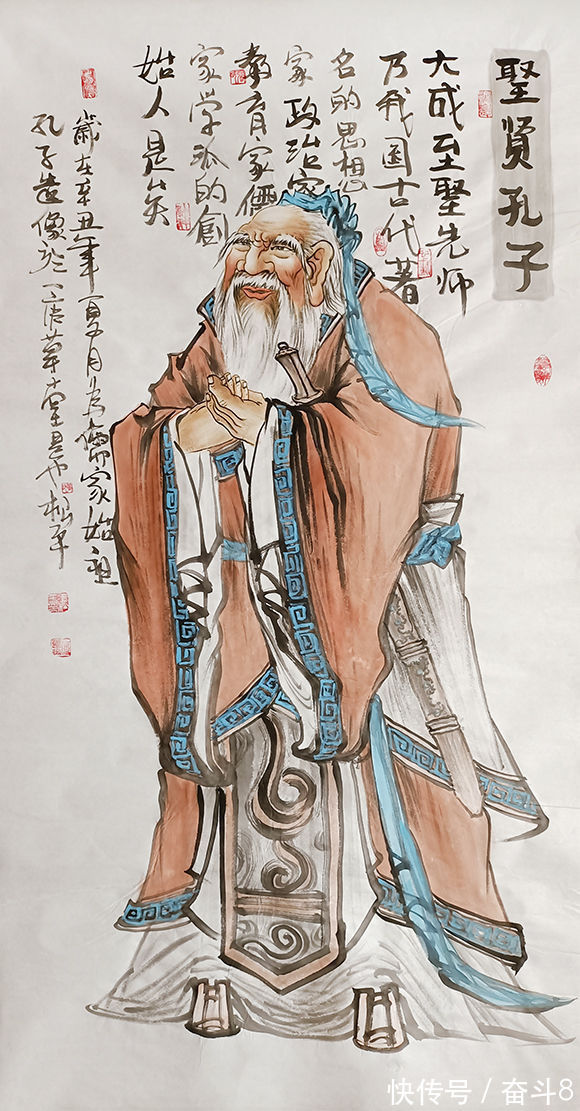 聖贤孔子
大成至聖先师
乃我國古代著
名的思想
家政治家
教育家儒
家学派的創
始人是矣
歲在辛丑年夏月为儒家始祖
孔子造像於草堂松平
快传号 / 奋斗8